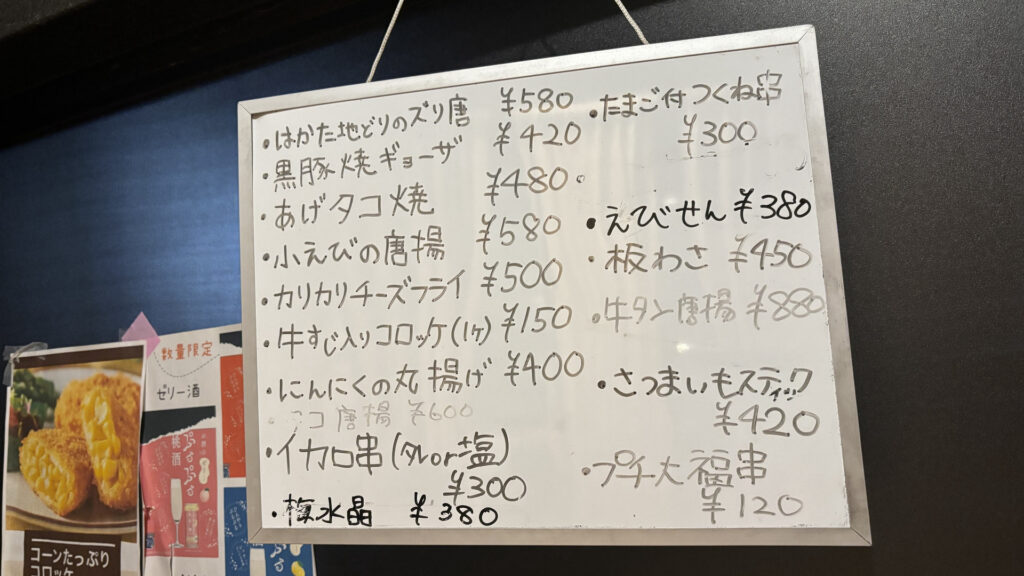 ・はかた地どりのズリ唐 ¥580
・黒豚焼ギョーザ ¥420
・あげタコ焼 ¥480
・小えびの唐揚 ¥580
・カリカリチーズフライ ¥500
・牛すじ入りコロッケ(1ヶ) ¥150
・にんにくの丸揚げ ¥400
コ唐揚 ¥600
・イカロ串(タレor塩)
¥300
・梅水晶 ¥380
・たまご付つくね串
¥300
・えびせん ¥380
・板わさ ¥450
・牛タン唐揚 ¥880
・さつまいもスティック
¥420
・プチ大福串
¥120
数量限定
ゼリー酒
桃酒
ぷるぷる
コーンたっぷり
コロッケ